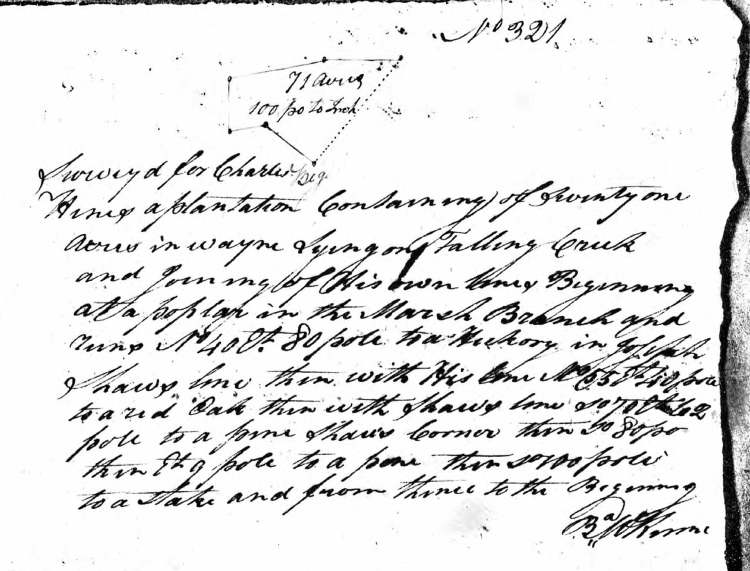 No 321
71 acres
100 po to Inch
Beg
Surveyd for Charles
Hines a plantation Containing of Seventy one
acres in wayne Lying on Falling Creek
and Joining of His own lines Beginning
at a poplar in the Marsh Branch and
runs No 40 Et 80 pole to a Hickory in Joseph
Shaws line then with His line No 55 Et 40 pole
to a red Oak then with Shaws line So 70 Et
pole to a pine Shaws Corner then So 80 po
then Et 9 pole to a pine then So 100 pole
to a Stake and from thence to the Beginning